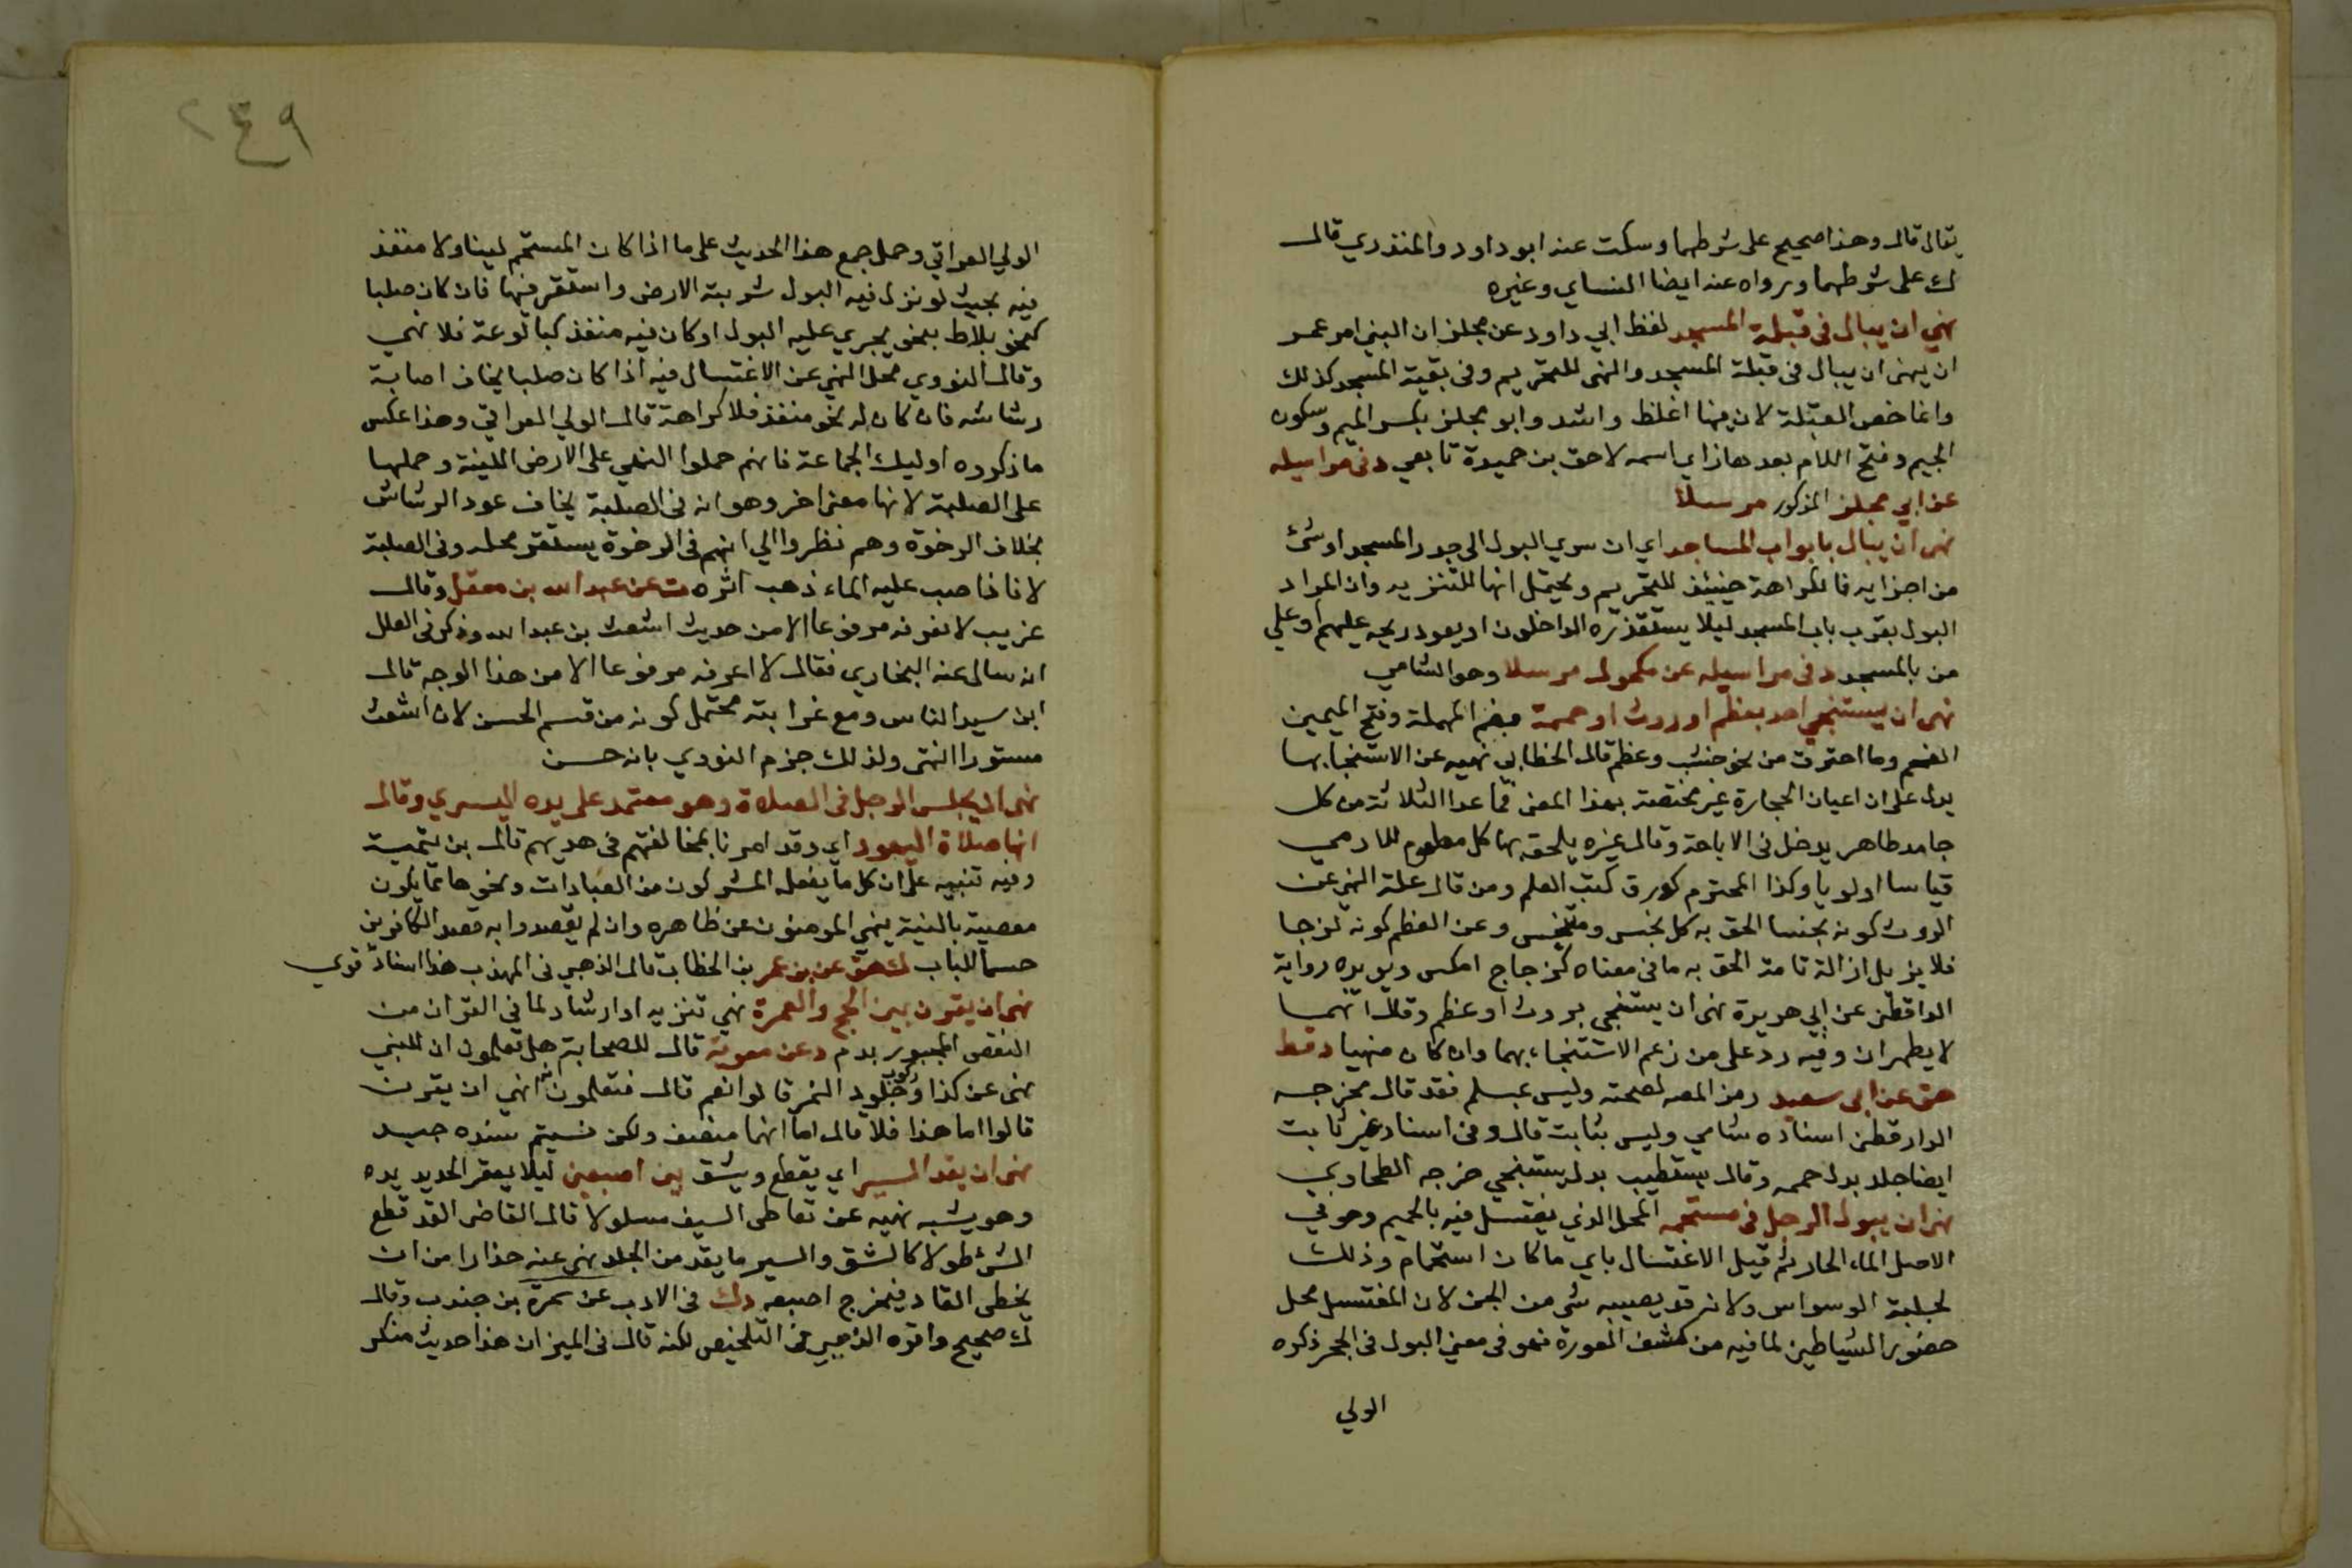 يقال قال وهذا صحيح على شرطهما وسكت عنه ابو داود والمنذري قال
ك على شرطهما ورواه عنه ايضا النساي وغيره
نهى ان يبال فى قبلة المسجد لفظ ابي داود عن مجلز ان النبى امر عمر
ان ينهى ان يبال فى قبلة المسجد والنهى للتحريم وفى بقية المسجد كذلك
وانما خص القبلة لان فيها اغلظ واشد وابو مجلز بكسر الميم وسكون
الجيم وفتح اللام بعدها زاي اسمه لاحق بن حميدة تابعي د فى مراسيله
عن ابي مجلز المذكور مرسلا
نهى ان يبال بابواب المساجد اي ان سري البول الى جدر المسجد او شئ
من اجزايه فالكراهة حينئذ للتحريم ويحتمل انها للتنزيه وان المراد
البول بقرب باب المسجد ليلا يستقذره الداخلون او يعود ريحه عليهم او على
من بالمسجد د فى مراسيله عن مكحول مرسلا وهو الشامي
نهى ان يستنجي احد بعظم او روث او حممة بضم المهملة وفتح الميمين
الفحم وما احترق من نحو خشب وعظم قال الخطابي نهيه عن الاستنجا بها
يدل على ان اعيان الحجارة غير مختصة بهذا المعنى فما عدا الثلاثة من كل
جامد طاهر يدخل فى الاباحة وقال غيره يلحق بها كل مطعوم للادمي
قياسا اولويا وكذا المحترم كورق كتب العلم ومن قال علة النهي عن
الروث كونه نجسا الحق به كل نجس ومتنجس وعن العظم كونه لزجا
فلا يزيل ازالة تامة الحق به ما فى معناه كزجاج املس ويويده رواية
الداقطنى عن ابي هريرة نهى ان يستنجى بروث او عظم وقال انهما
لا يطهران وفيه رد على من زعم الاستنجاء بهما وان كان منهيا د قط
هق عن ابى سعيد رمز المصه لصحته وليس بمسلم فقد قال مخرجه
الدارقطنى اسناده شامي وليس بثابت قال وفى اسناد غير ثابت
ايضا جلد بدل حممه وقال يستطيب بدل يستنجي خرجه الطحاوي
نهى ان يبول الرجل فى مستحمه المحل الذي يغتسل فيه بالحميم وهو فى
الاصل الماء الحار ثم قيل الاغتسال باي ما كان استحمام وذلك
لجلبة الوسواس ولانه قد يصيبه شى من الجن لان المغتسل محل
حضور الشياطين لما فيه من كشف العورة فهو فى معنى البول فى الجحر ذكره
الولي
٢٤٩
الولي العراقي وحمل جمع هذا الحديث على ما اذا كان المستحم لينا ولا منفذ
فيه بحيث لو نزل فيه البول شربته الارض واستقر فيها فان كان صلبا
كنحو بلاط بنحو يجري عليه البول او كان فيه منفذ كبالوعة فلا نهي
وقال النووي محل النهي عن الاغتسال فيه اذا كان صلبا يخاف اصابة
رشاشه فان كان له نحو منفذ فلا كراهة قال الولي العراقي وهذا عكس
ما ذكروه اوليك الجماعة فانهم حملوا النهي على الارض اللينة وحملها
على الصلبة لانها معنى اخر وهو انه فى الصلبة يخاف عود الرشاش
بخلاف الرخوة وهم نظروا الي انهم فى الرخوة يستقر محله وفى الصلبة
لا فاذا صب عليه الماء ذهب اثره ت عن عبد الله بن معقل وقال
غريب لا نعرفه مرفوعا الا من حديث اشعث بن عبد الله وذكر فى العلل
انه سال عنه البخاري فقال لا اعرفه مرفوعا الا من هذا الوجه قال
ابن سيد الناس ومع غرابته محتمل كونه من قسم الحسن لان اشعث
مستور انتهى ولذلك جزم النووي بانه حسن
نهى ان يجلس الرجل فى الصلاة وهو معتمد على يده اليسري وقال
انها صلاة اليهود اي وقد امرنا بمخالفتهم فى هديهم قال بن تيمية
وفيه تنبيه على ان كل ما يفعله المشركون من العبادات ونحوها مما يكون
معصية بالنية ينهي المومنون عن ظاهره وان لم يقصدوا به قصد الكافرين
حسما للباب ك هق عن بن عمر بن الخطاب قال الذهبي فى المهذب هذا اسناد قوي
نهى ان يقرن بين الحج والعمرة نهي تنزيه او ارشاد لما فى القران من
النقص المجبور بدم د عن معوية قال للصحابة هل تعلمون ان النبي
نهى عن كذا وركوب جلود النمر قالوا نعم قال فتعلمون انه نهي ان يقرن
قالوا اما هذا فلا قال اما انها معهن ولكن نسيتم سنده جيد
نهى ان يقد السير اي يقطع ويشق بين اصبعين ليلا يعقر الحديد يده
وهو يشبه نهيه عن تعاطى السيف مسلولا قال القاضى القد قطع
الشئ طولا كالشق والسير ما يقد من الجلد نهى عنه حذارا من ان
يخطى القاد فيخرج اصبعه د ك فى الادب عن سمرة بن جندب وقال
ك صحيح واقره الذهبي فى التلخيص لكنه قال فى الميزان هذا حديث منكر